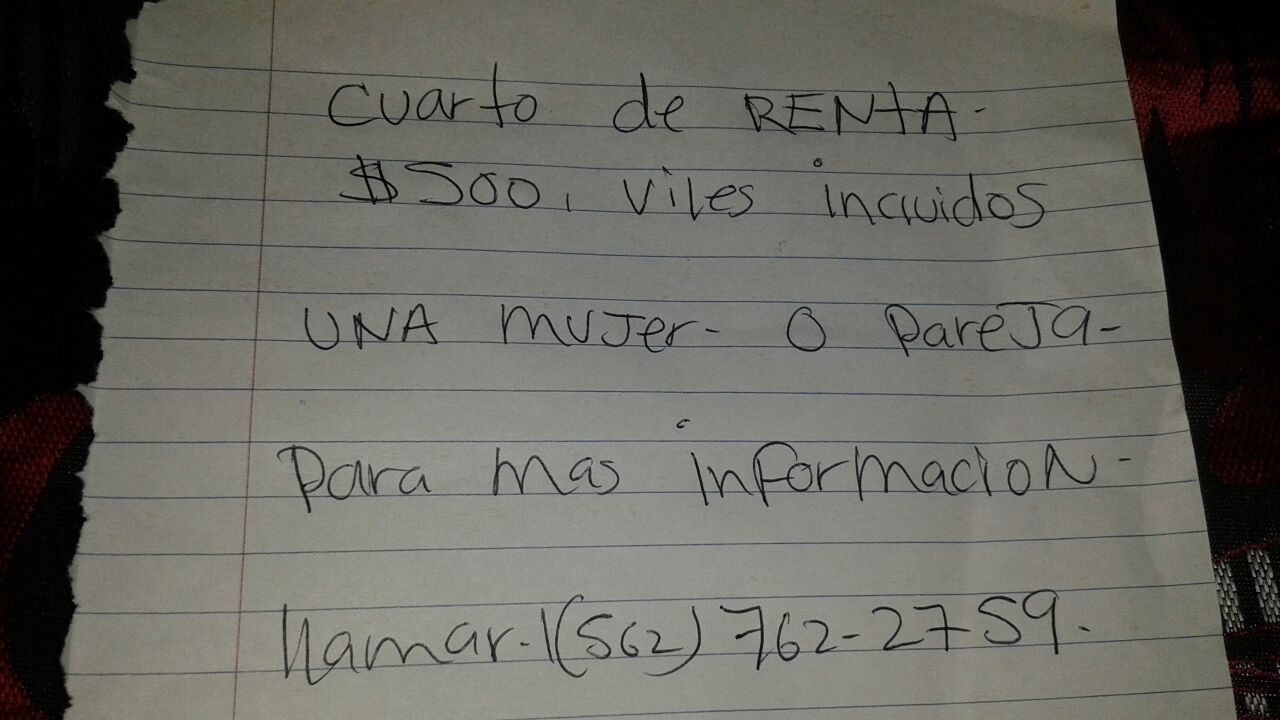 Cuarto de RENtA-
$500, viles incluidos
UNA mujer- O pareja-
para mas informacion-
llamar-1(562) 762-2759.